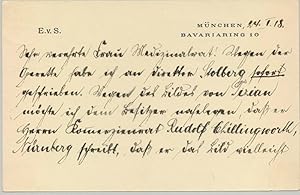 E.v.S.
MÜNCHEN, 24.1.18.
BAVARIARING 10
Sehr verehrte Frau Medizinalrat. Wegen der
Operette habe ich an Direktor Stolberg sofort
geschrieben. Wegen des Bildes von
möchte ich dem Besitzer nahelegen, daß er
Herrn Komerzienrat Rudolf Chillingworth,
Nürnberg schreibt, daß er das Bild vielleicht